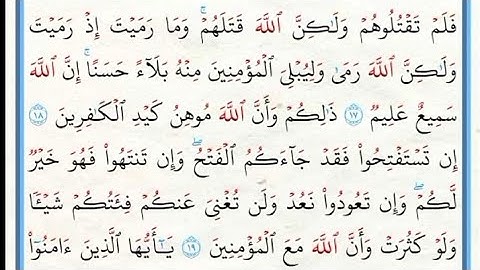 فَلَمۡ تَقۡتُلُوهُمۡ وَلَٰكِنَّ ٱللَّهَ قَتَلَهُمۡۚ وَمَا رَمَيۡتَ إِذۡ رَمَيۡتَ
وَلَٰكِنَّ ٱللَّهَ رَمَىٰ وَلِيُبۡلِيَ ٱلۡمُؤۡمِنِينَ مِنۡهُ بَلَآءً حَسَنًاۚ إِنَّ ٱللَّهَ
سَمِيعٌ عَلِيمٞ ١٧ ذَٰلِكُمۡ وَأَنَّ ٱللَّهَ مُوهِنُ كَيۡدِ ٱلۡكَٰفِرِينَ ١٨
إِن تَسۡتَفۡتِحُواْ فَقَدۡ جَآءَكُمُ ٱلۡفَتۡحُۖ وَإِن تَنتَهُواْ فَهُوَ خَيۡرٞ
لَّكُمۡۖ وَإِن تَعُودُواْ نَعُدۡ وَلَن تُغۡنِيَ عَنكُمۡ فِئَتُكُمۡ شَيۡـٔٗا
وَلَوۡ كَثُرَتۡ وَأَنَّ ٱللَّهَ مَعَ ٱلۡمُؤۡمِنِينَ ١٩ يَٰٓأَيُّهَا ٱلَّذِينَ ءَامَنُوٓاْ